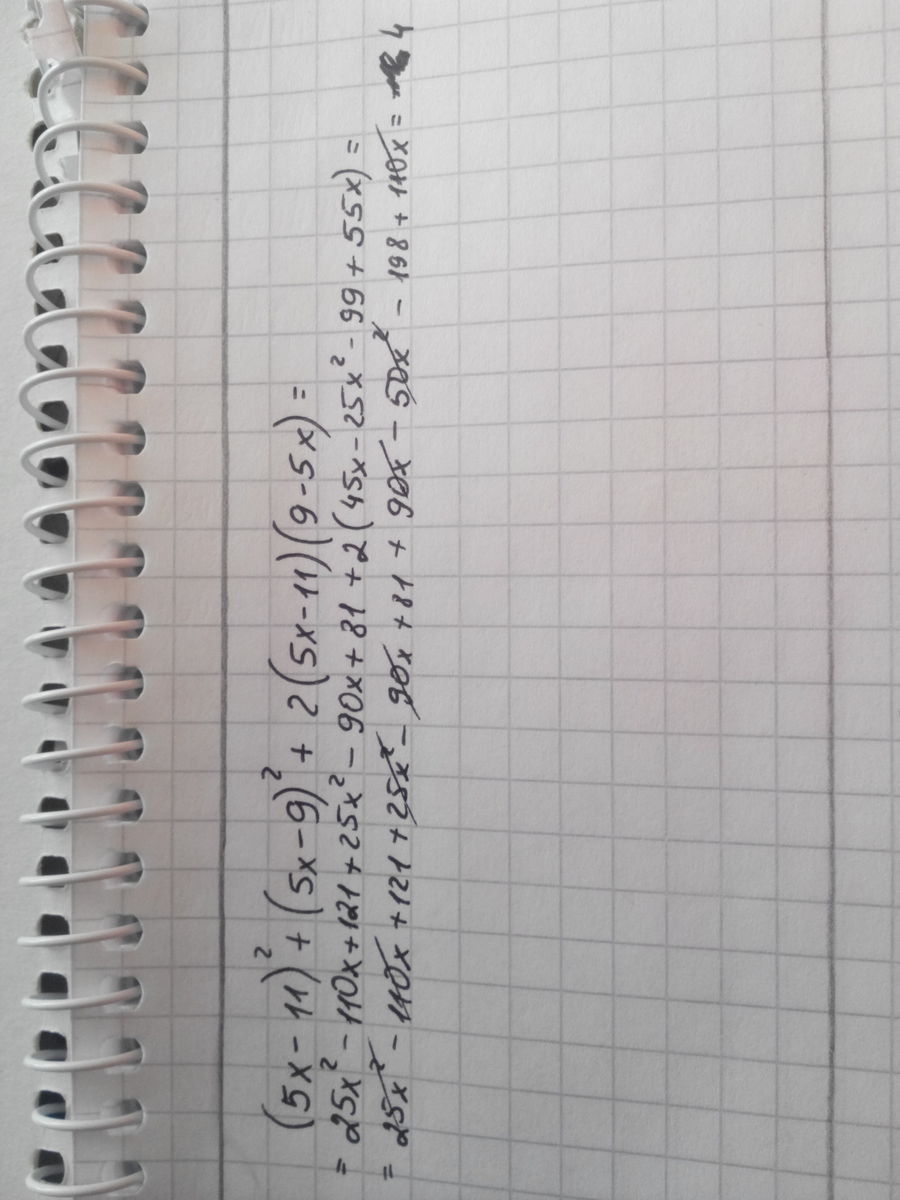 (5x-11)² + (5x-9)² + 2(5x-11)(9-5x) =
= 25x² - 110x + 121 + 25x² - 90x + 81 + 2(45x - 25x² - 99 + 55x) =
= 25x² - 110x + 121 + 25x² - 90x + 81 + 90x - 50x² - 198 + 110x = 4